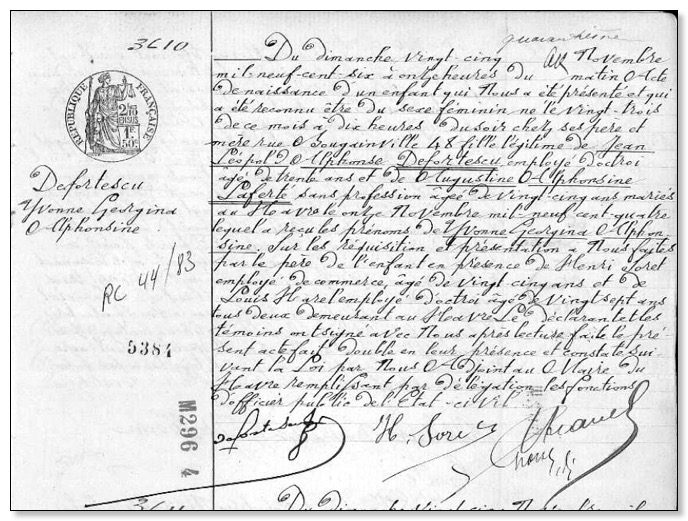 3610
RÉPUBLIQUE FRANÇAISE
Defortescu
Yvonne Georgina
Alphonsine
RC 44/83
5384
M296 4
Du dimanche vingt-cinq Novembre
mil-neuf-cent-six à onze heures du matin Acte
de naissance d'un enfant qui Nous a été présenté et qui
a été reconnu être du sexe féminin né le vingt-trois
de ce mois à dix heures du soir chez ses père et
mère rue Bougainville 48 fille légitime de Jean
Léopold Alphonse Defortescu employé d'octroi
agé de trente ans et de Augustine Alphonsine
Laferté sans profession âgée de vingt-cinq ans mariés
au Havre le onze Novembre mil-neuf cent-quatre
lequel a reçu les prénoms de Yvonne Georgina Alphon-
sine. Sur les réquisition et présentation à Nous faites
par le père de l'enfant en présence de Henri Soret
employé de commerce, agé de vingt cinq ans et de
Louis Harel employé d'octroi âgé de vingt sept ans
tous deux demeurant au Havre Le déclarant et les
témoins ont signé avec Nous après lecture faite le pré-
sent acte fait double en leur présence et constaté sui-
vant la Loi par Nous Adjoint au Maire du
Havre remplissant par délégation les fonctions
d'officier public de l'Etat-civil
H. Soret
3611
Du